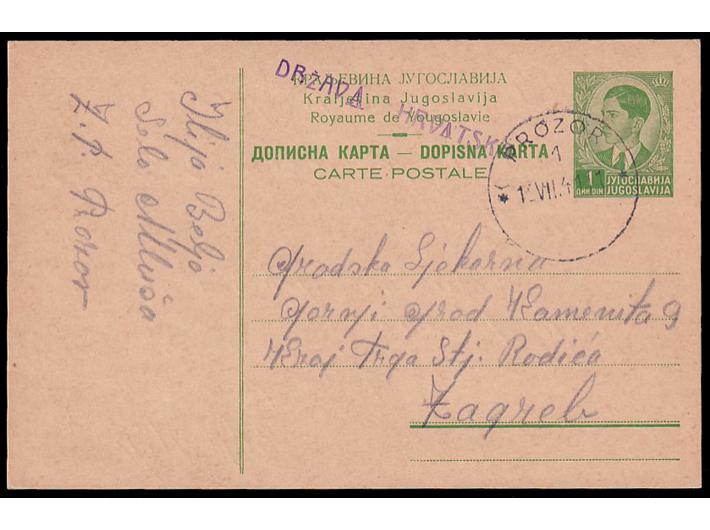 Ilija Beljo
Selo
P. Prozor
DRŽAVA HRVATSKA
КРАЉЕВИНА ЈУГОСЛАВИЈА
Kraljevina Jugoslavija
Royaume de Yougoslavie
ДОПИСНА КАРТА — DOPISNA KARTA
CARTE POSTALE
PROZOR
1
VII.41
1
ДИН DIN
ЈУГОСЛАВИЈА
JUGOSLAVIJA
Gradska Ljekarna
Gornji grad Kamenita 9
Kraj Trga Stj. Radića
Zagreb